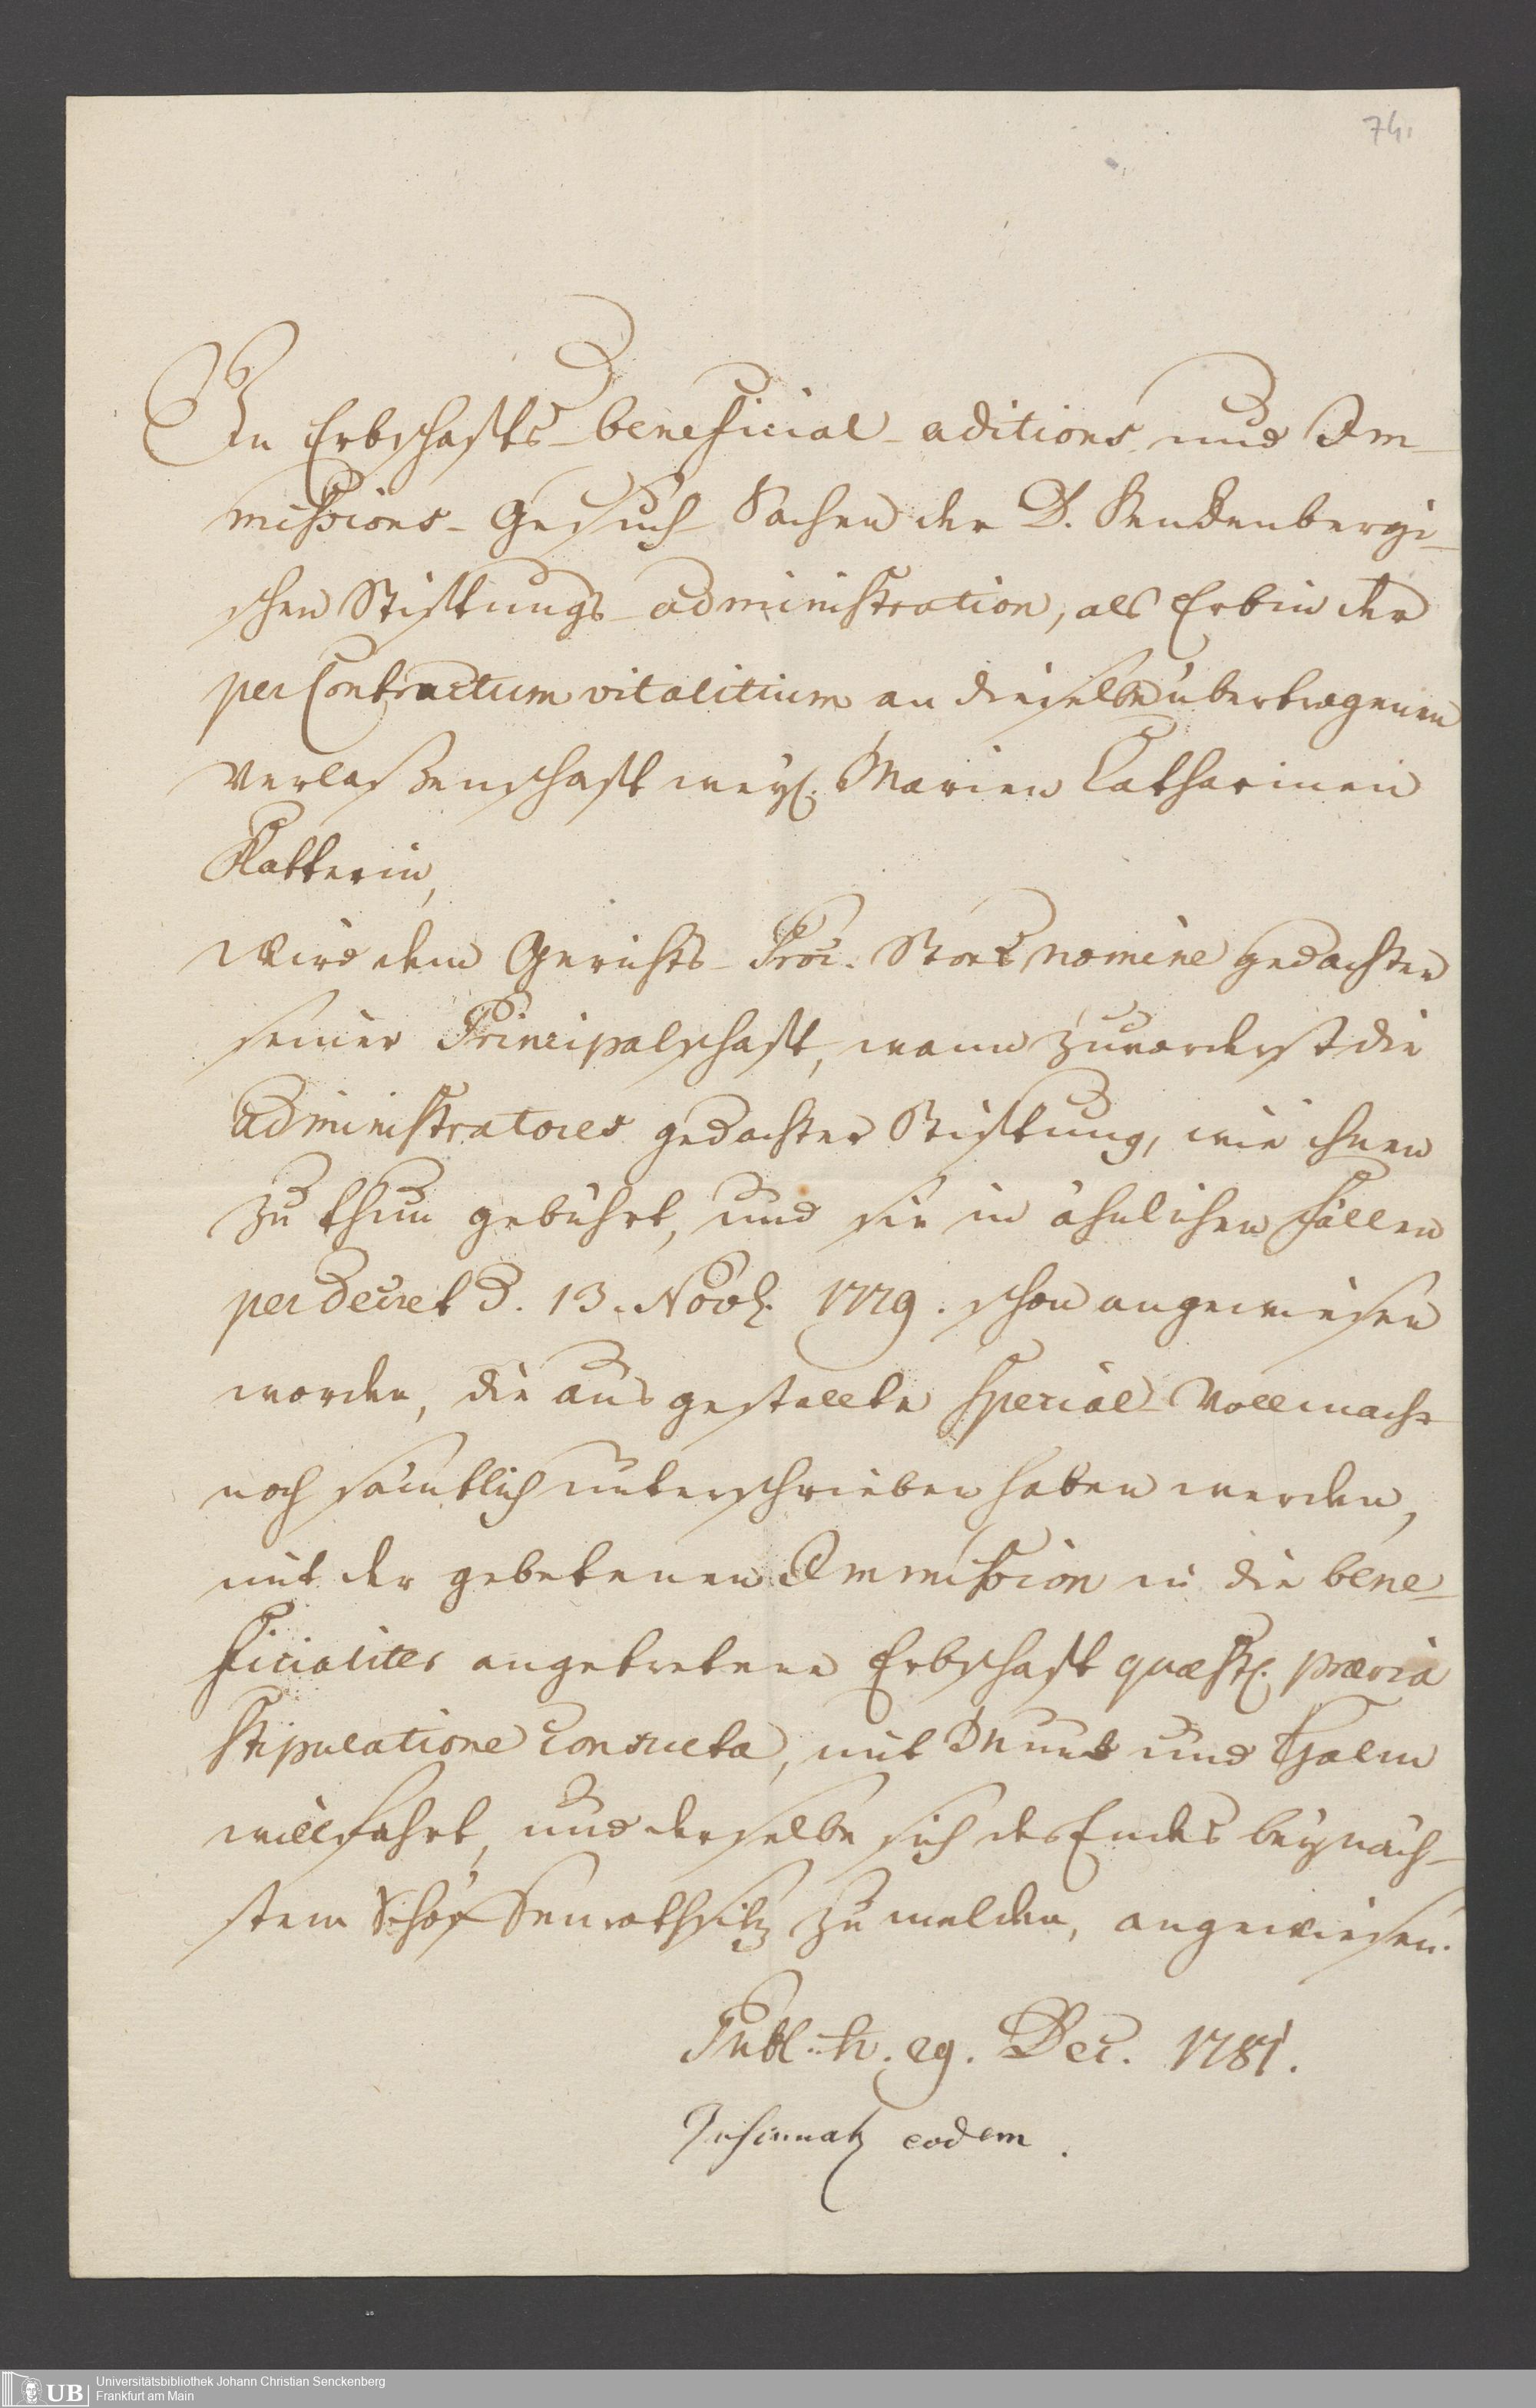 74.
In Erbschafts-beneficial-aditions und Im-
missions-Gesuch Sachen der D. Senckenbergi-
schen Stiftungs-administration, als Erbin der
per Contractum vitalitium an dieselbe übertragenen
Verlaßenschaft weyl. Marien Catharinen
Platterin,
Wird dem Gerichts-Proc. Stock nomine gedachter
seiner Principalschaft, wann zuvorderst die
administratores gedachter Stiftung, wie ihnen
zu thun gebührt, und sie in ähnlichen Fällen
per Decret d. 13. Novb. 1779. schon angewiesen
worden, die ausgestellte Special-Vollmacht
noch sämtlich unterschrieben haben werden,
mit der gebetenen Immission in die bene-
ficialiter angetretene Erbschaft quæst. prævia
stipulatione consueta, mit Mund und Halm
willfahrt, und derselbe sich des Endes bey näch-
stem Schöffenrathsitz zu melden, angewiesen.
Publ. h. 29. Dec. 1781.
Insinuat eodem.
Universitätsbibliothek Johann Christian Senckenberg
UB
Frankfurt am Main